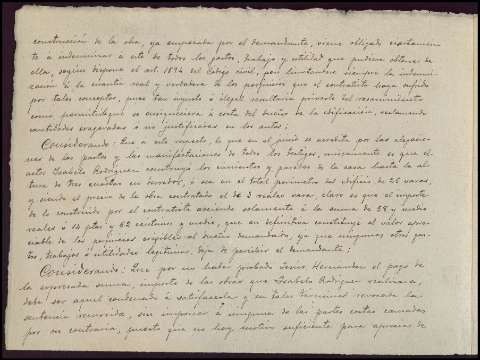 construcción de la obra, ya empezada por el demandante, viene obligado exactamen-
te a indemnizar á este de todos los gastos, trabajo y utilidad que pudiera obtener de
ella, según dispone el art. 1594 del Código civil, pero limitandose siempre la indemni-
zacion á la cuantia real y verdadera de los perjuicios que el contratista haya sufrido
por tales conceptos, pues tan injusto é ilegal resultaria privarle del resarcimiento
como permitir que se enriqueciera á costa del dueño de la edificación, reclamando
cantidades exageradas ó no justificadas en los autos;
Considerando: Que a este respecto, lo que en el juicio se acredita por las alegacio-
nes de las partes y las manifestaciones de todos los testigos, unicamente es que el
actor Isabelo Rodriguez construyó los cimientos y paredes de la casa hasta la al-
tura de tres cuartas en derredor, ó sea en el total perimetro del edificio de 25 varas,
y siendo el precio de la obra contratada el de 3 reales vara, claro es que el importe
de lo construido por el contratista asciende solamente á la suma de 58 y medio
reales ó 14 ptas y 62 centimos y medio, que en definitiva constituye el valor apre-
ciable de los perjuicios exigibles al dueño demandado, ya que ningunos otros gas-
tos, trabajos ó utilidades legitimas, dejó de percibir el demandante;
Considerando: Que por no haber probado Jesus Hernandez el pago de
la expresada suma, importe de las obras que Isabelo Rodriguez realizara,
debe ser aquel condenado á satisfacerla, y en tales terminos revocada la
sentencia recurrida, sin imponer á ninguna de las partes costas causadas
por su contraria, puesto que no hay motivo suficiente para apreciar de